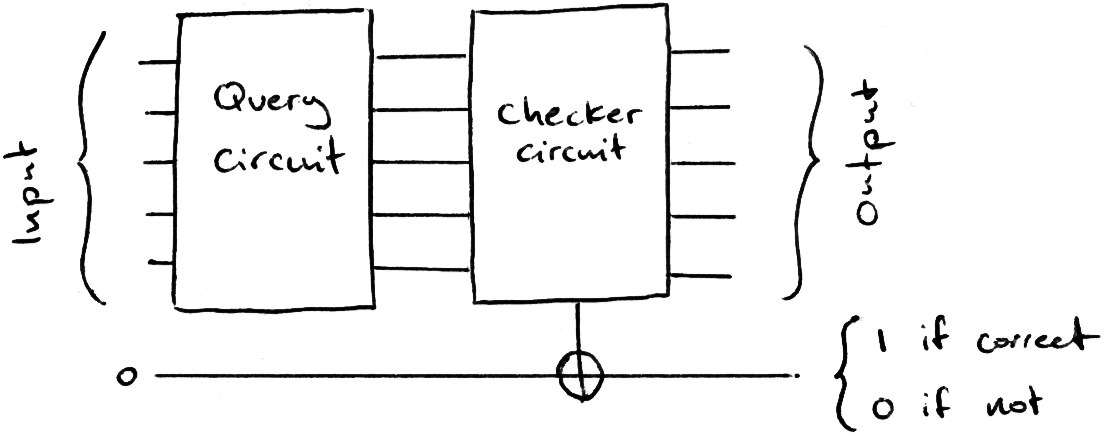 Input
Query
circuit
checker
circuit
Output
0
1 if correct
0 if not